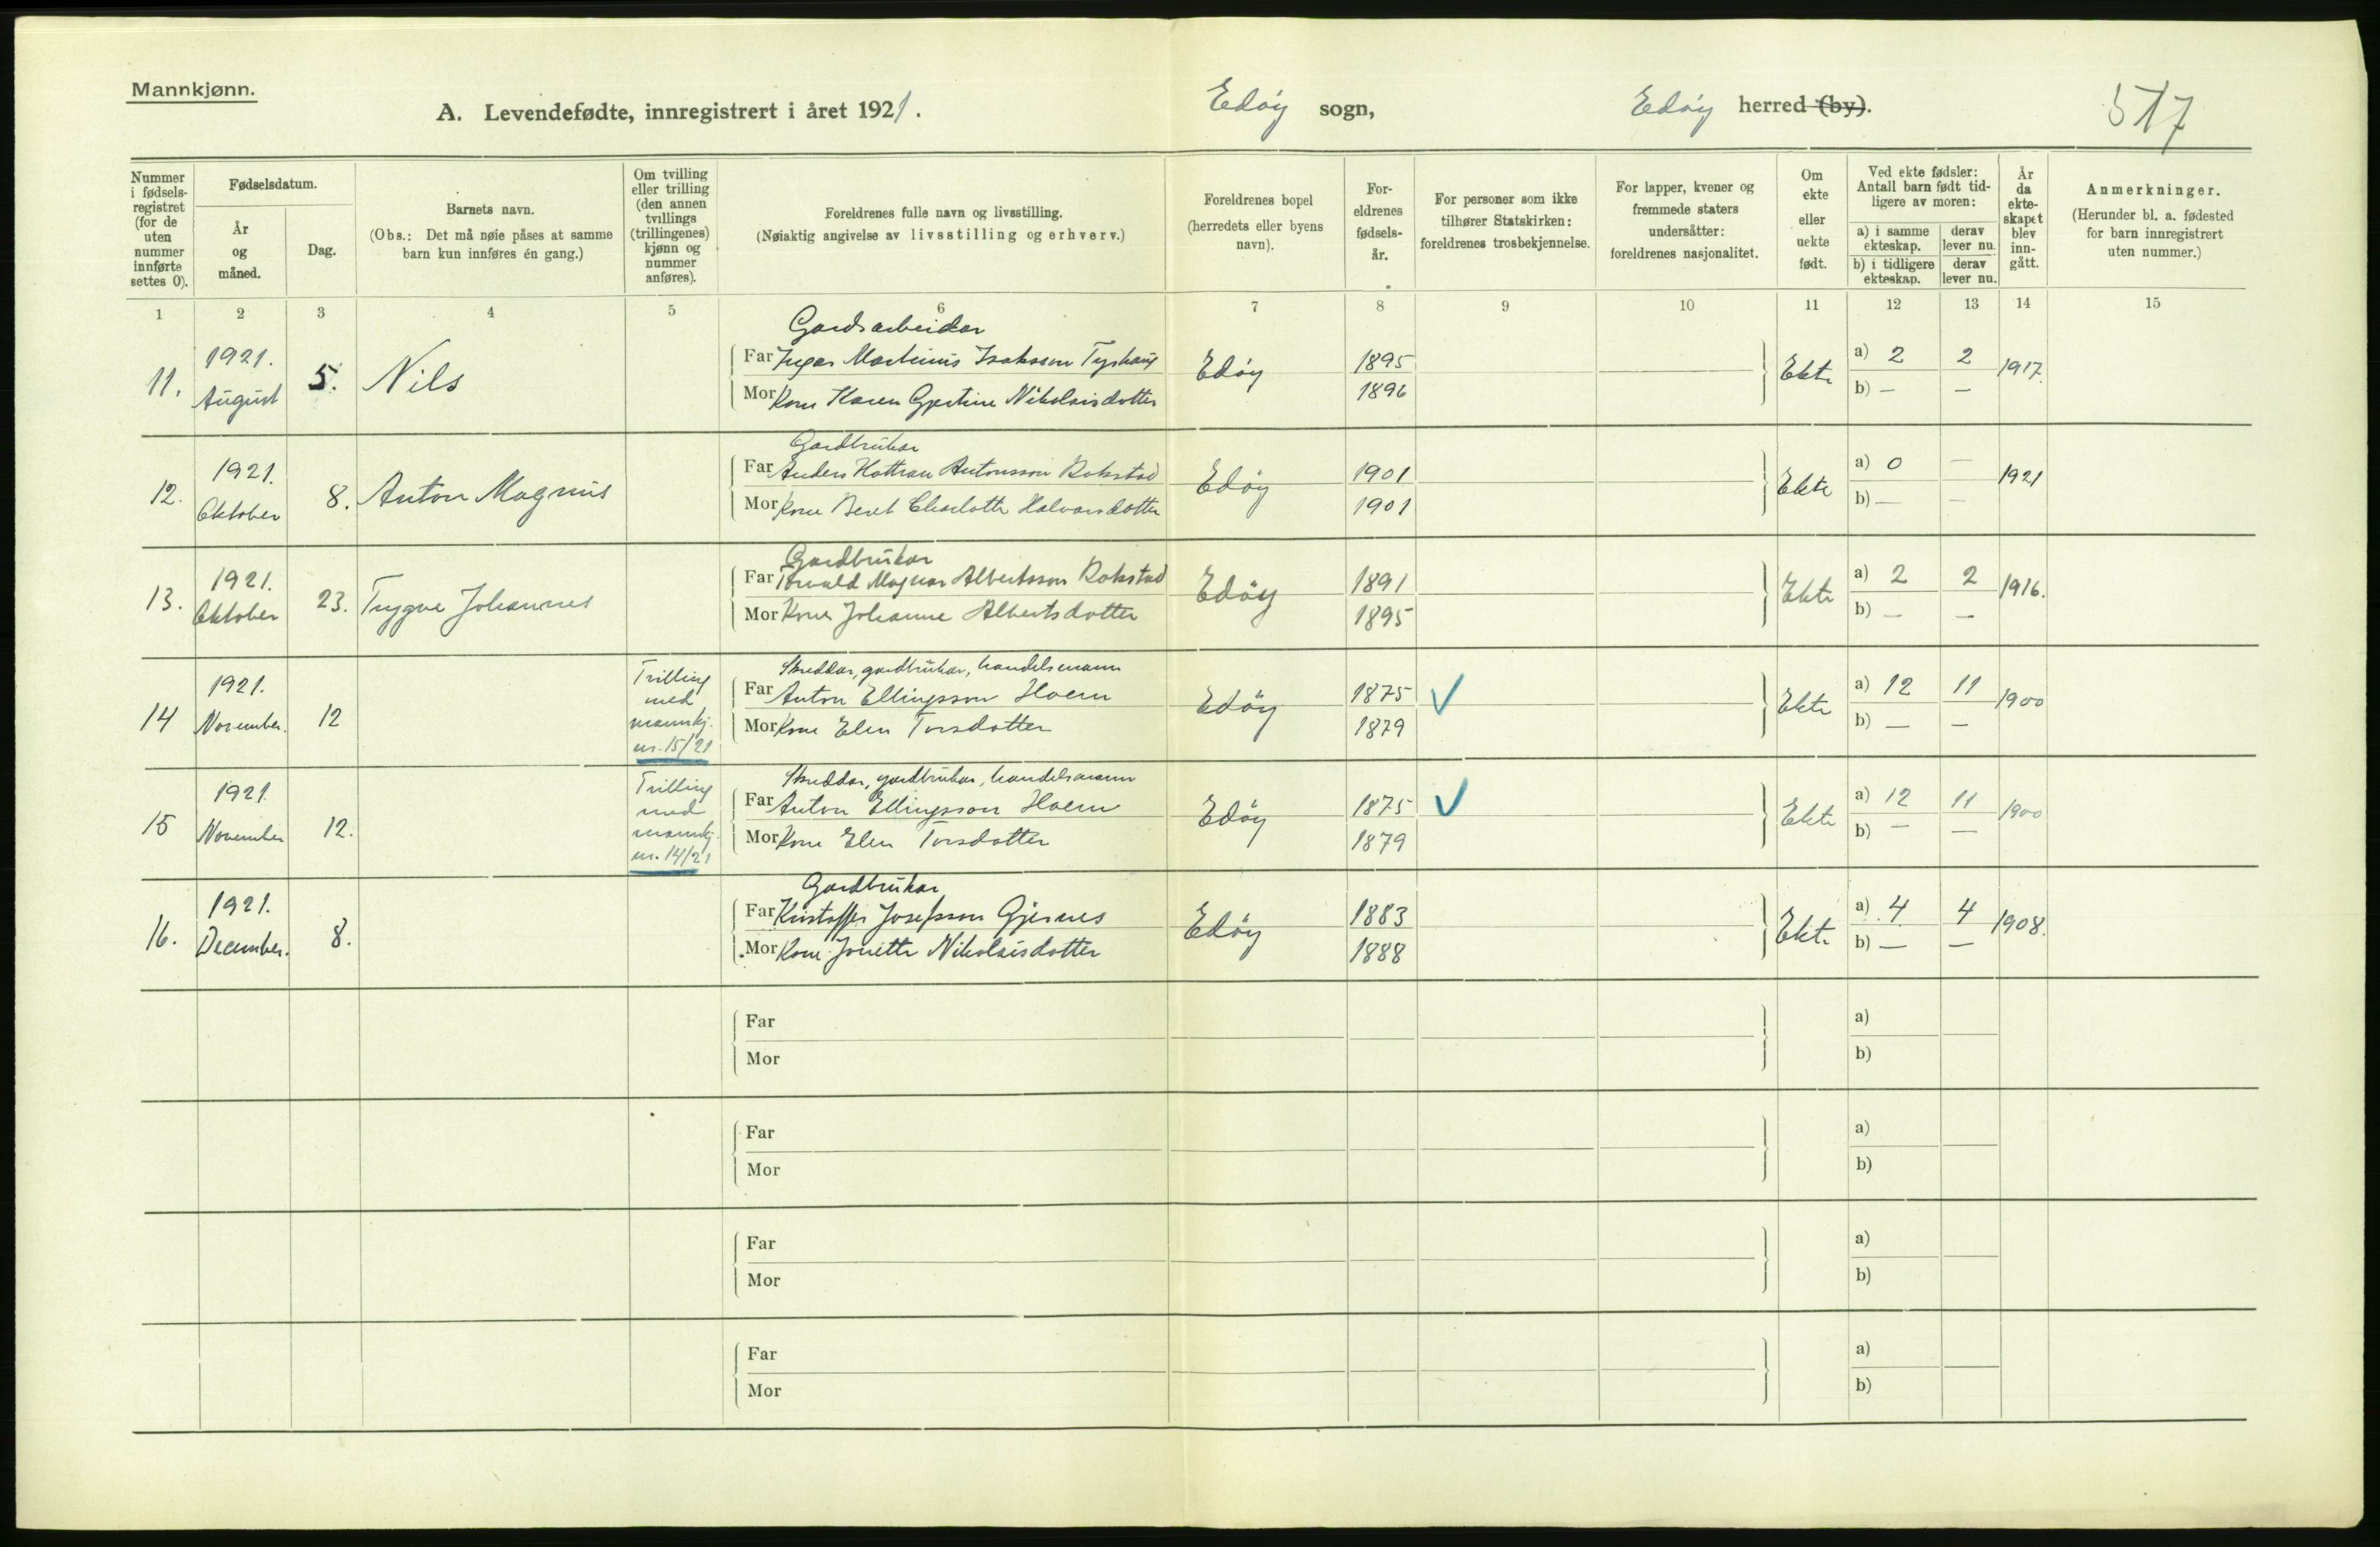 Mannkjønn.
A. Levendefødte, innregistrert i året 1921.
Edøy sogn,
Edøy herred (by).
517
Nummer i fødsels-registret (for de uten nummer innførte settes 0).
Fødselsdatum.
År og måned.
Dag.
Barnets navn.
(Obs.: Det må nøie påses at samme barn kun innføres én gang.)
Om tvilling eller trilling (den annen tvillings (trillingenes) kjønn og nummer anføres).
Foreldrenes fulle navn og livsstilling.
(Nøiaktig angivelse av livsstilling og erhverv.)
Foreldrenes bopel
(herredets eller byens navn).
For-eldrenes fødsels-år.
For personer som ikke tilhører Statskirken: foreldrenes trosbekjennelse.
For lapper, kvener og fremmede staters undersåtter: foreldrenes nasjonalitet.
Om ekte eller uekte født.
Ved ekte fødsler: Antall barn født tid-ligere av moren:
a) i samme ekteskap.
derav lever nu.
b) i tidligere ekteskap.
derav lever nu.
År da ekte-skapet blev inn-gått.
Anmerkninger.
(Herunder bl. a. fødested for barn innregistrert uten nummer.)
1 2 3 4 5 6 7 8 9 10 11 12 13 14 15
Gardsarbeidar
11. 1921. August 5. Nils
Far Martinus Isaksson
Mor Kone Karen Gjertine Nikolaisdotter
Edøy 1895 1896 Ekte a) 2 2 b) — — 1917.
Gardbrukar
12. 1921. Oktober 8. Anton Magnus
Far Anders Antonsson Rokstad
Mor Kone Beret Charlotte Halvorsdotter
Edøy 1901 1901 Ekte a) 0 — b) — — 1921
Gardbrukar
13. 1921. Oktober 23. Trygve Johannes
Far Torvald Magnar Albertsson Rokstad
Mor Kone Johanne Albertsdotter
Edøy 1891 1895 Ekte a) 2 2 b) — — 1916.
Skreddar, gardbrukar, handelsmann
14 1921. November. 12
Trilling med mannkj. nr. 15/21
Far Anton Ellingsson Hoem
Mor Kone Elen Torsdotter
Edøy 1875 1879 ✓ Ekte a) 12 11 b) — — 1900
Skreddar, gardbrukar, handelsmann
15 1921 November 12.
Trilling med mannkj. nr. 14/21
Far Anton Ellingsson Hoem
Mor Kone Elen Torsdotter
Edøy 1875 1879 ✓ Ekte a) 12 11 b) — — 1900
Gardbrukar
16. 1921. December. 8.
Far Kristoffer Josefsson Gjernes
Mor Kone Jonette Nikolaisdotter
Edøy 1883 1888 Ekte a) 4 4 b) — — 1908.
Far a)
Mor b)
Far a)
Mor b)
Far a)
Mor b)
Far a)
Mor b)